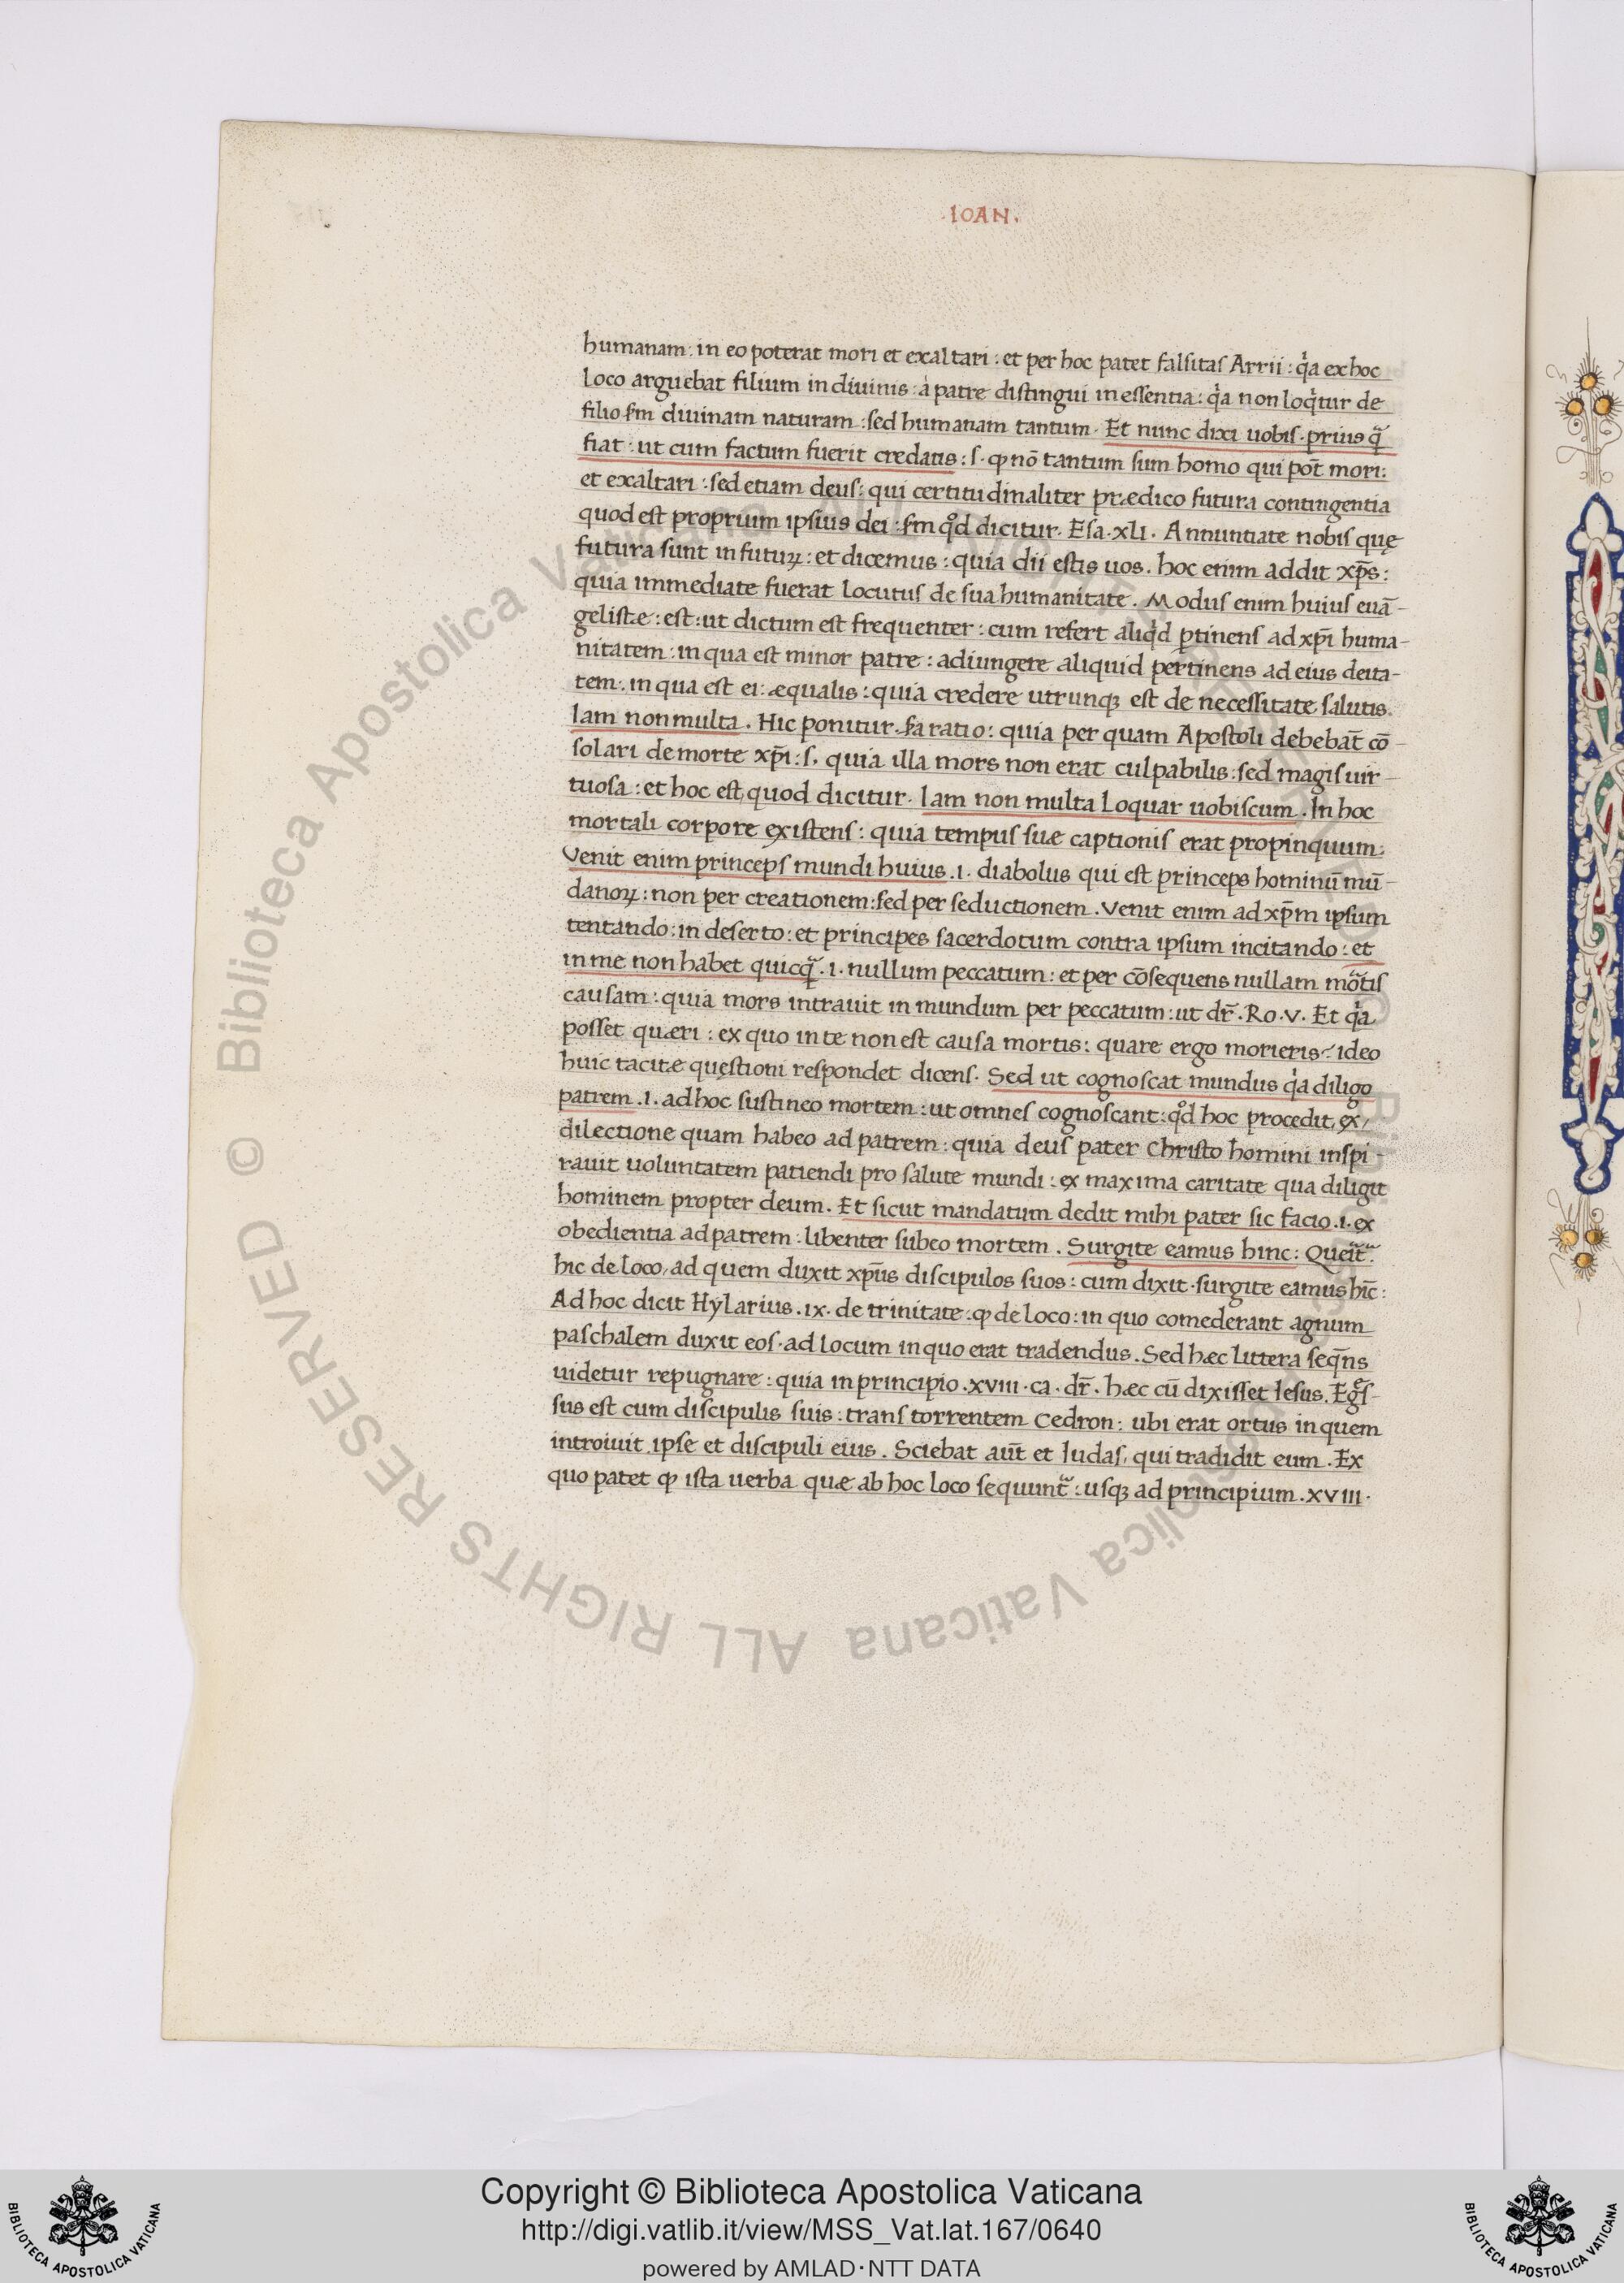 .IOAN.
humanam: in eo poterat mori et exaltari: et per hoc patet falsitas Arrii: qͥa ex hoc
loco arguebat filium in diuinis: à patre distingui in essentia: qͥa non loqͥtur de
filio ſm diuinam naturam: sed humanam tantum. Et nunc dixi uobis. prius q̃
fiat: ut cum factum fuerit credatis: s. ꝙ nō tantum sum homo qui pōt mori:
et exaltari: sed etiam deus: qui certitudinaliter prædico futura contingentia
quod est proprium ipsius dei: ſm qͦd dicitur. Esa. xLI. Annuntiate nobis quę
futura sunt in futuꝝ: et dicemus: quia dii estis uos. hoc enim addit xp̄s:
quia immediate fuerat locutus de sua humanitate. Modus enim huius euā-
gelistæ: est: ut dictum est frequenter: cum refert aliqͥd ꝑtinens ad xp̄i huma-
nitatem: in qua est minor patre: adiungere aliquid pertinens ad eius deita-
tem: in qua est ei: æqualis: quia credere utrunqꝫ est de necessitate salutis.
Iam non multa. Hic ponitur .ſa ratio: quia per quam Apostoli debebat̄ cō-
solari de morte xp̄i: s. quia illa mors non erat culpabilis: sed magis uir-
tuosa: et hoc est, quod dicitur. Iam non multa loquar uobiscum. In hoc
mortali corpore existens: quia tempus suæ captionis erat propinquum:
Venit enim princeps mundi huius .i. diabolus qui est princeps hominū mū-
danoꝝ: non per creationem: sed per seductionem. Venit enim ad xp̄m ipsum
tentando: in deserto: et principes sacerdotum contra ipsum incitando: et
in me non habet quicq̃ .i. nullum peccatum: et per cōsequens nullam mõtis
causam: quia mors intrauit in mundum per peccatum: ut dr̄. Ro. v. Et qͥa
posset quæri: ex quo in te non est causa mortis: quare ergo morieris? ideo
huic tacitæ quęstioni respondet dicens. Sed ut cognoscat mundus qͥa diligo
patrem .i. ad hoc sustineo mortem: ut omnes cognoscant: qͦd hoc procedit, ex
dilectione quam habeo ad patrem: quia deus pater Christo homini inspi-
rauit uoluntatem patiendi pro salute mundi: ex maxima caritate qua diligit
hominem propter deum. Et sicut mandatum dedit mihi pater sic facio .i. ex
obedientia ad patrem: libenter subeo mortem. Surgite eamus hinc: Queĩt̃
hic de loco, ad quem duxit xp̄us discipulos suos: cum dixit. surgite eamus hīc:
Ad hoc dicit Hylarius .ix. de trinitate: ꝙ de loco: in quo comederant agnum
paschalem duxit eos. ad locum in quo erat tradendus. Sed hæc littera seqn̄s
uidetur repugnare: quia in principio .xviii. ca. dr̄. hæc cū dixisset Iesus. Eg̃s-
sus est cum discipulis suis: trans torrentem Cedron: ubi erat ortus in quem
introiuit ipse et discipuli eius. Sciebat aūt et Iudas, qui tradidit eum. Ex
quo patet ꝙ ista uerba quæ ab hoc loco sequunt̃: usqꝫ ad principium .xviii.
© Biblioteca Apostolica Vaticana ALL RIGHTS RESERVED
Copyright © Biblioteca Apostolica Vaticana
http://digi.vatlib.it/view/MSS_Vat.lat.167/0640
powered by AMLAD·NTT DATA
BIBLIOTECA APOSTOLICA VATICANA
BIBLIOTECA APOSTOLICA VATICANA